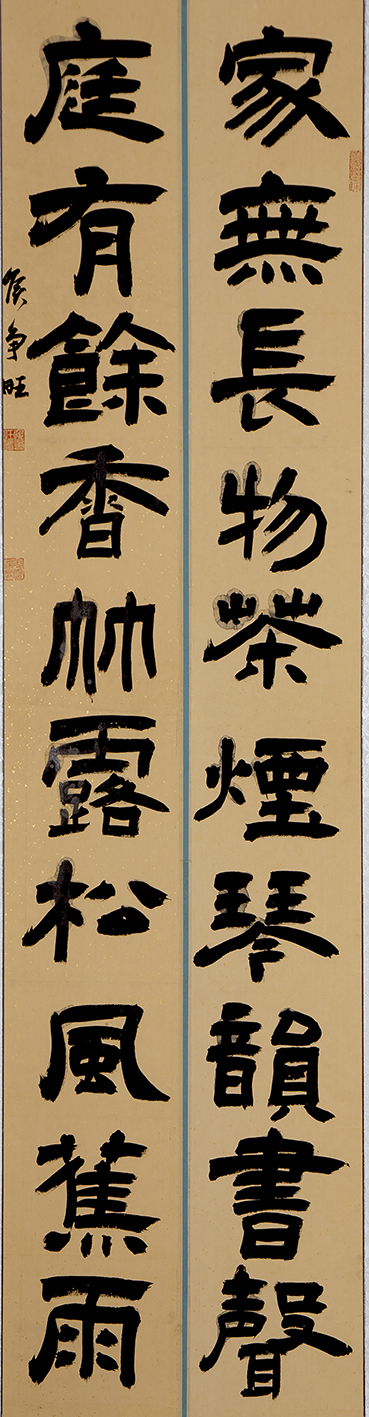 家無長物茶煙琴韻書聲
庭有餘香竹露松風蕉雨
侯爭旺